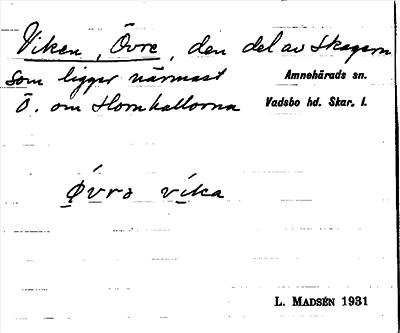 Viken, Övre, den del av Skagern
som ligger närmast Amnehärads sn.
Ö. om Hornhallorna Vadsbo hd. Skar. l.
Øvrə vika
L. MADSÉN 1931